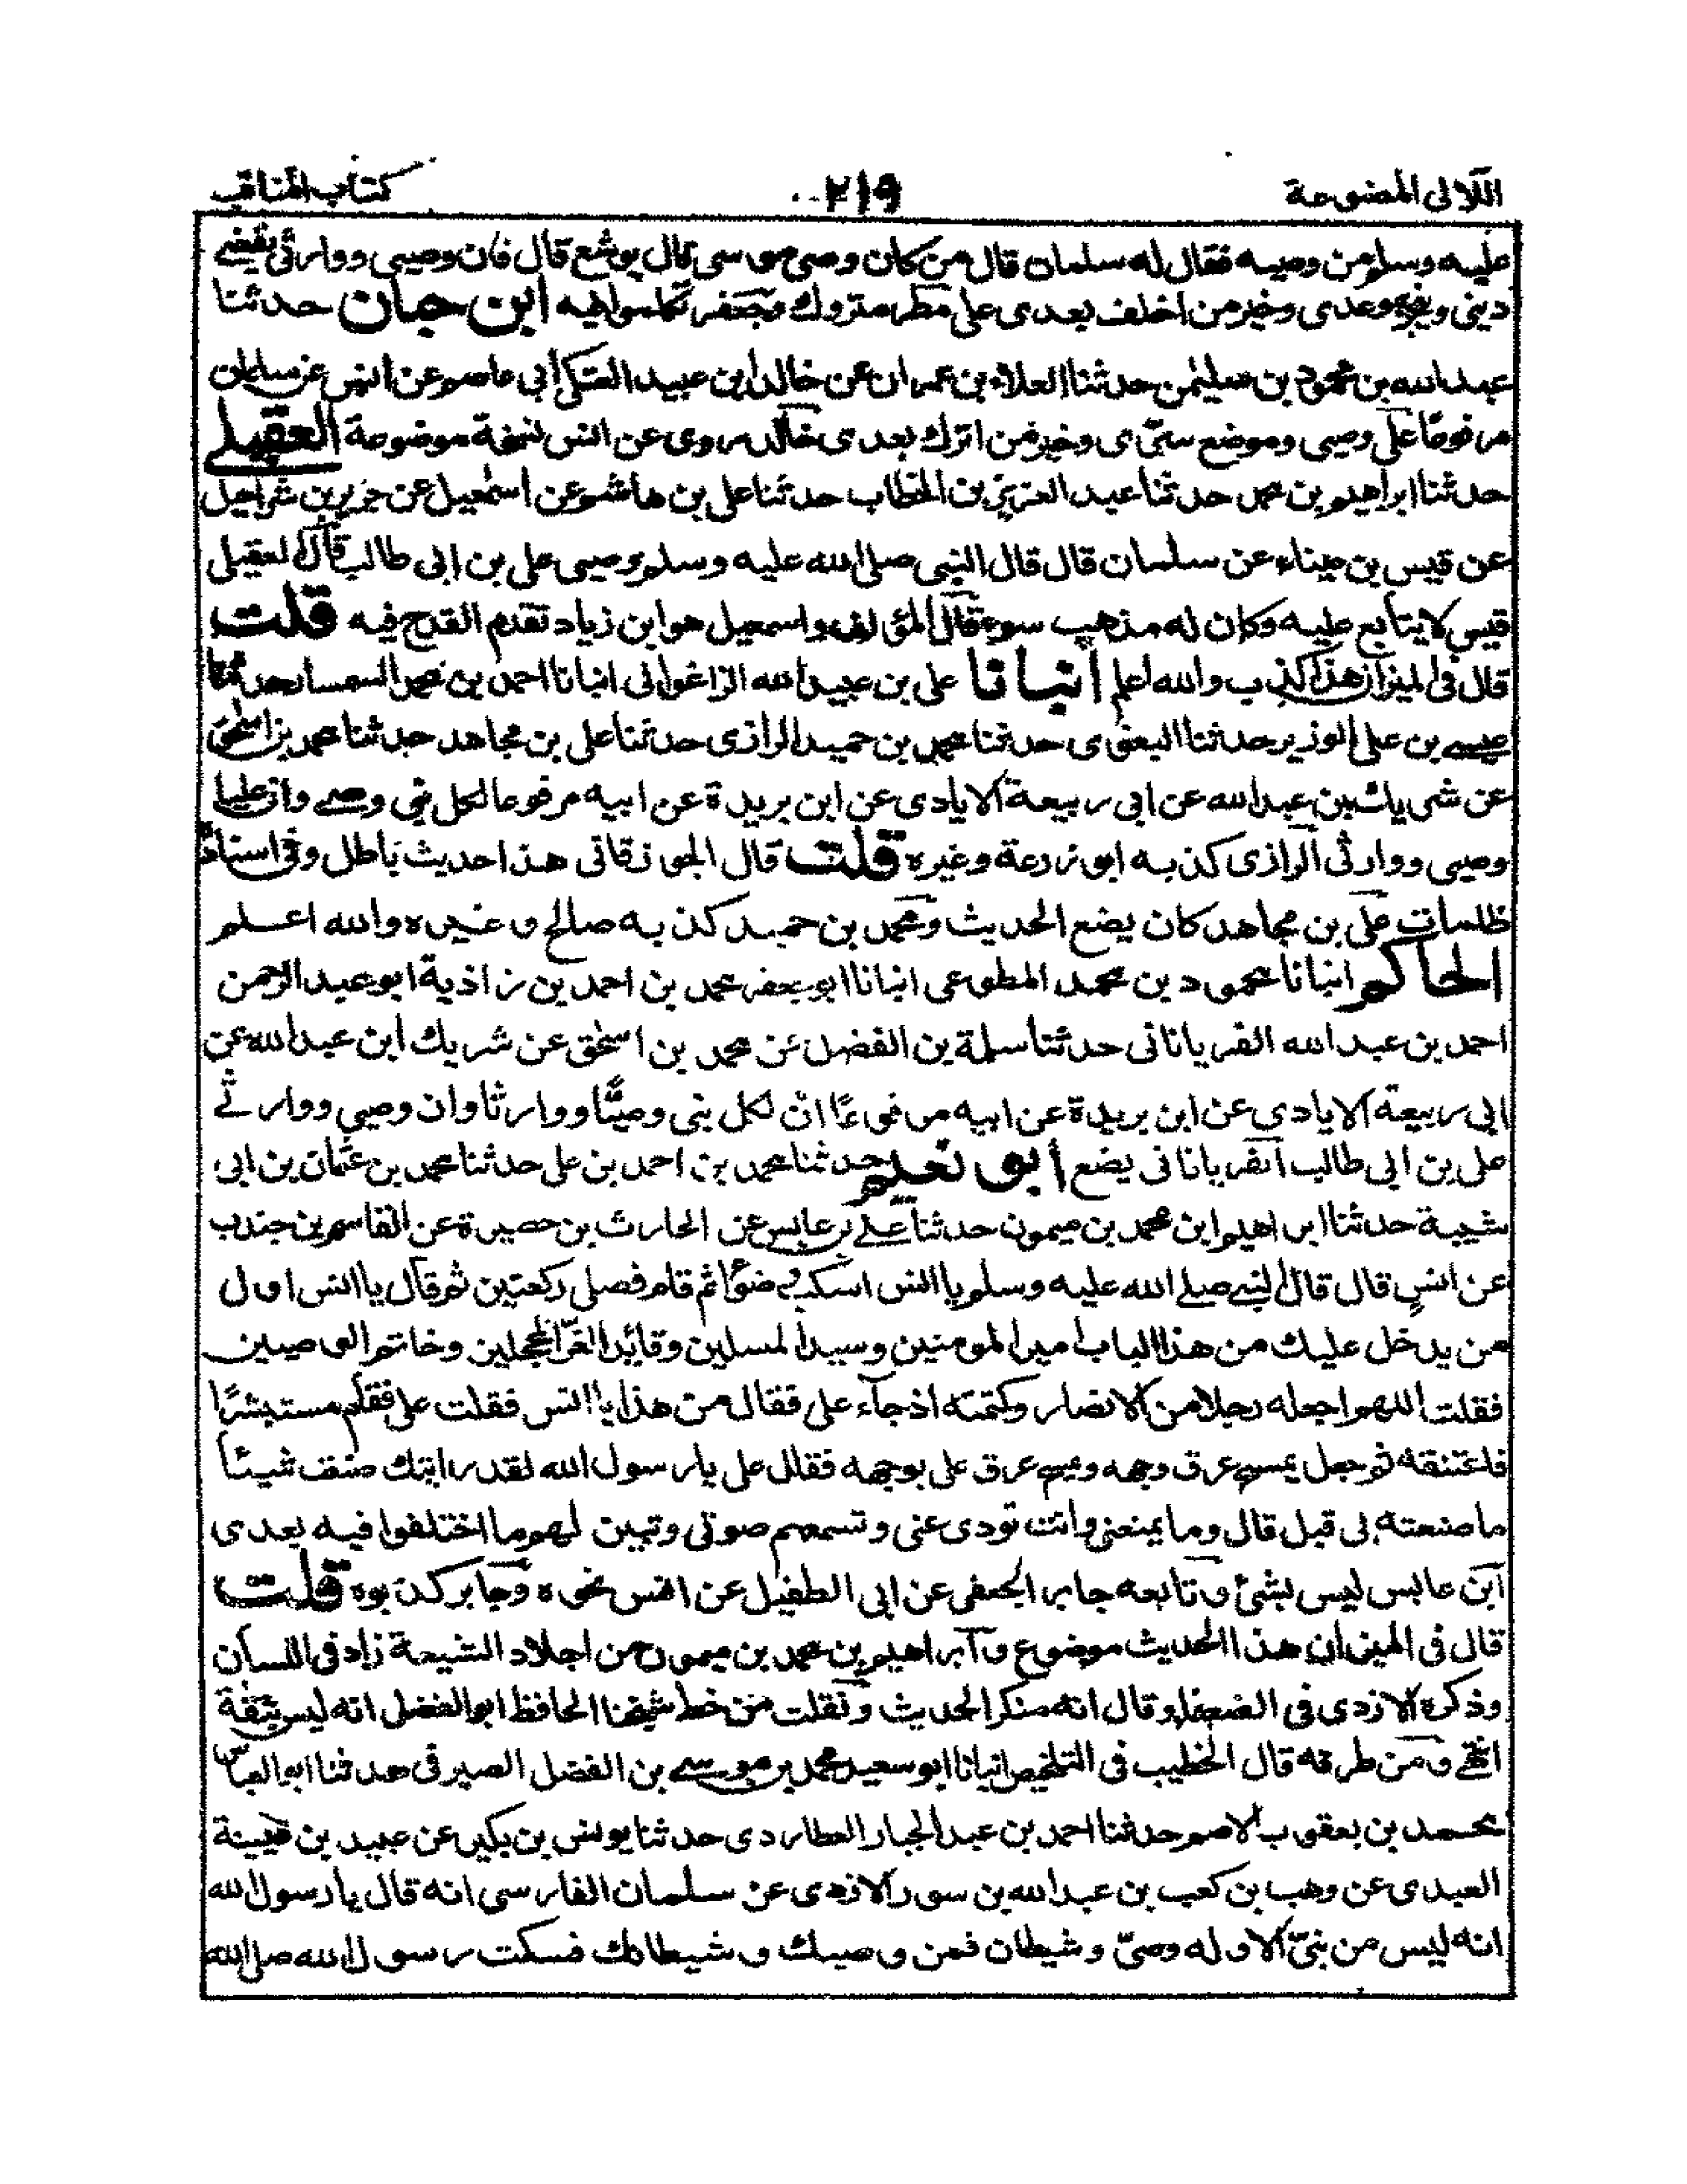 اللآلى المصنوعة ٢١٩ كتاب المناقب
عليه وسلم من وصيه فقال له سلمان قال من كان وصى موسى قال يوشع قال فان وصيى ووارثى يقضى
دينى وينجز وعدى وخير من اخلف بعدى على مطر متروك وجعفر تكلموا فيه ابن حبان حدثنا
عبدالله بن محمود بن سليمن حدثنا العلاء بن عمران عن خالد ابن عبيد العتكى ابى عاصم عن انس عن سلمان
مرفوعًا على وصيى وموضع سرّى وخير من اترك بعدى خالد روى عن انس نسخة موضوعة العقيلى
حدثنا ابراهيم بن محمد حدثنا عبد العزيز بن الخطاب حدثنا على بن هاشم عن اسمعيل عن جرير بن شراحيل
عن قيس بن ميناء عن سلمان قال قال النبى صلى الله عليه وسلم وصيى على بن ابى طالب قال العقيلى
قيس لا يتابع عليه وكان له مذهب سوء قال المؤلف واسمعيل هو ابن زياد تقدم القدح فيه قلت
قال فى الميزان هذا كذب والله اعلم انبانا على بن عبيدالله الزاغوانى انبانا احمد بن محمد السمسار حدثنا
عيسى بن على الوزير حدثنا البغوى حدثنا محمد بن حميد الرازى حدثنا على بن مجاهد حدثنا محمد بن اسحق
عن شريك بن عبدالله عن ابى ربيعة الايادى عن ابن بريدة عن ابيه مرفوعا لكل نبى وصى وان عليا
وصيى ووارثى الرازى كذبه ابو زرعة وغيره قلت قال الجوزقانى هذا حديث باطل وفى اسناده
ظلمات على بن مجاهد كان يضع الحديث ومحمد بن حميد كذبه صالح وغيره والله اعلم
الحاكم انبانا محمود بن محمد المطوعى انبانا ابو جعفر محمد بن احمد بن زاذية ابو عبد الرحمن
احمد بن عبد الله الفريانانى حدثنا سلمة بن الفضل عن محمد بن اسحق عن شريك ابن عبد الله عن
ابى ربيعة الايادى عن ابن بريدة عن ابيه مرفوعًا ان لكل نبى وصيًّا ووارثا وان وصيى ووارثى
على بن ابى طالب الفريانانى يضع أبو نعيم حدثنا محمد بن احمد بن على حدثنا محمد بن عثمان بن ابى
شيبة حدثنا ابراهيم ابن محمد بن ميمون حدثنا على بن عابس عن الحارث بن حصيرة عن القاسم بن جندب
عن انسٍ قال قال النبى صلى الله عليه وسلم يا انس اسكب لى ضوءًا ثم قام فصلى ركعتين ثم قال يا انس اول
من يدخل عليك من هذا الباب امير المومنين وسيد المسلمين وقائد الغرّ المحجلين وخاتم الوصيين
فقلت اللهم اجعله رجلا من الانصار وكتمته اذ جآء على فقال من هذا يا انس فقلت على فقام مستبشرًا
فاعتنقه ثم جعل يمسح عرق وجهه ويمسح عرق على بوجهه فقال على يا رسول الله لقد رايتك صنعت شيئا
ما صنعته بى قبل قال وما يمنعنى وانت تودى عنى وتسمعهم صوتى وتبين لهم ما اختلفوا فيه بعدى
ابن عابس ليس بشئ وتابعه جابر الجعفى عن ابى الطفيل عن انس نحوه وجابر كذبوه قلت
قال فى الميزان هذا الحديث موضوع وابراهيم بن محمد بن ميمون من اجلاد الشيعة زاد فى اللسان
وذكره الازدى فى الضعفاء وقال انه منكر الحديث ونقلت من خط شيخنا الحافظ ابو الفضل انه ليس بثقة
انتهى ومن طرقه قال الخطيب فى التلخيص انبانا ابو سعيد محمد بن موسى بن الفضل الصيرفى حدثنا ابو العباس
محمد بن يعقوب الاصم حدثنا احمد بن عبد الجبار العطاردى حدثنا يونس بن بكير عن عبيد بن عيينة
العبدى عن وهب بن كعب بن عبدالله بن سور الازدى عن سلمان الفارسى انه قال يا رسول الله
انه ليس من نبىّ الا وله وصىّ وشيطان فمن وصيك وشيطانك فسكت رسول الله صلى الله